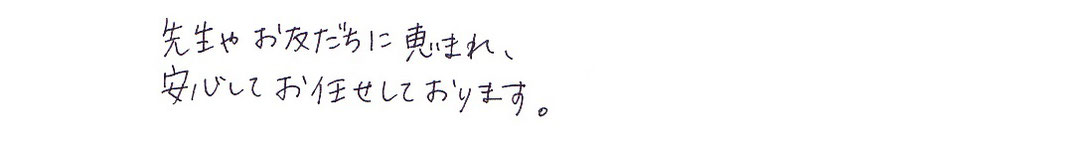 先生やお友だちに恵まれ、
安心してお任せしております。